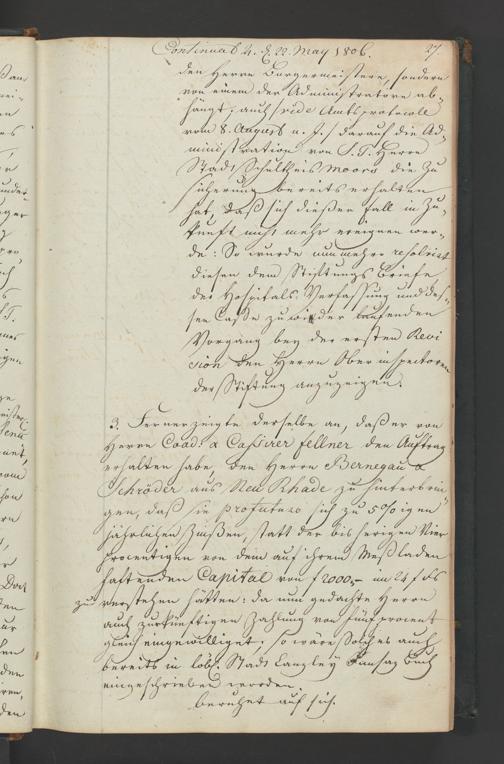 Continuat. d. 22. May 1806. 27
den Herrn Burgermeistern, sondern
von einem der Administratoren ab-
hängt; auch /: vide Amtsprotocoll
vom 8. August a. p. :/ darauf die Ad-
ministration von S. T. Herrn
Stadt Schultheis Moors die Zu
sicherung bereits erhalten
hat, daß sich dießer Fall in Zu-
kunft nicht mehr ereignen wer-
de: So wurde nunmehr resolvirt
diesen dem Stiftungs Briefe
des Hospitals, Verfassung und des-
sen Casse zuwieder laufenden
Vorgang bey der ersten Revi
sion den Herrn Oberinspectoren
der Stiftung anzuzeigen.
3. Ferner zeigte derselbe an, daß er von
Herrn Coad. & Cassirer Fellner den Auftrag
erhalten habe, den Herrn Bernegau &
Schröder aus Neu Rhade zu hinterbrin-
gen, daß sie pro futuro sich zu 5 % igen
jährlichen Zinßen, statt der bisherigen Vier
procentigen von dem auf ihrem Meß Laden
haftenden Capital von f 2000,- im 24 f Fs
zu verstehen hätten: da nun gedachte Herrn
auch zur künftigen Zahlung von fünf procent
gleich eingewilliget; so wäre Solches auch
bereits in löbl. Stadt Canzley Insaz Buch
eingeschrieben worden.
beruhet auf sich.